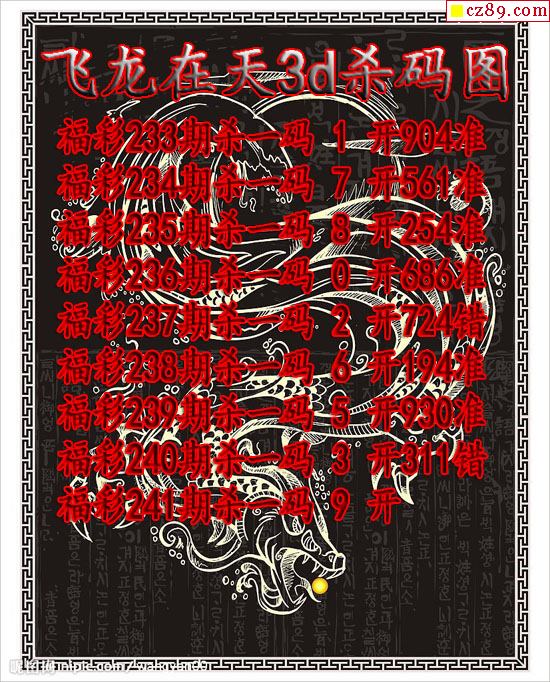 cz89.com
飞龙在天3d杀码图
福彩233期杀一码 1 开904准
福彩234期杀一码 7 开561准
福彩235期杀一码 8 开254准
福彩236期杀一码 0 开686准
福彩237期杀一码 2 开724错
福彩238期杀一码 6 开194准
福彩239期杀一码 5 开930准
福彩240期杀一码 3 开311错
福彩241期杀一码 9 开